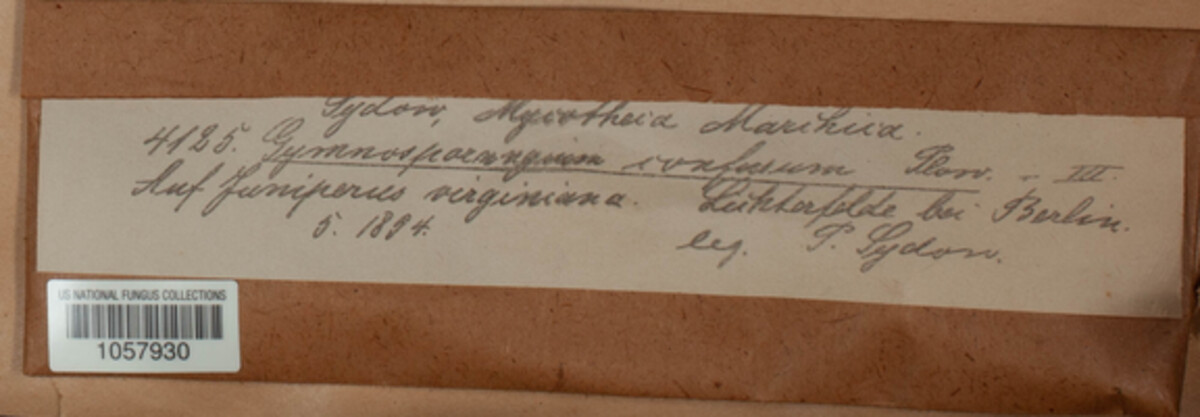 Sydow, Mycotheca Marchica.
4125. Gymnosporangium confusum Plow. - III.
Auf Juniperus virginiana. Lichterfelde bei Berlin.
5. 1894. leg. P. Sydow.
US NATIONAL FUNGUS COLLECTIONS
1057930